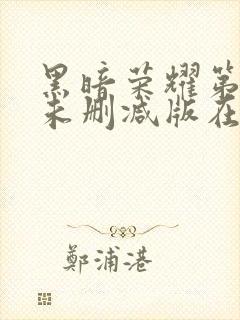 黑暗荣耀第
未删减版在
鄭浦港